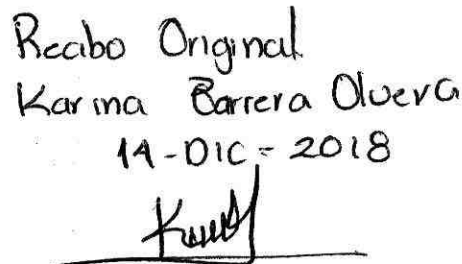 Recibo Original
Karina Barrera Olvera
14-DIC-2018